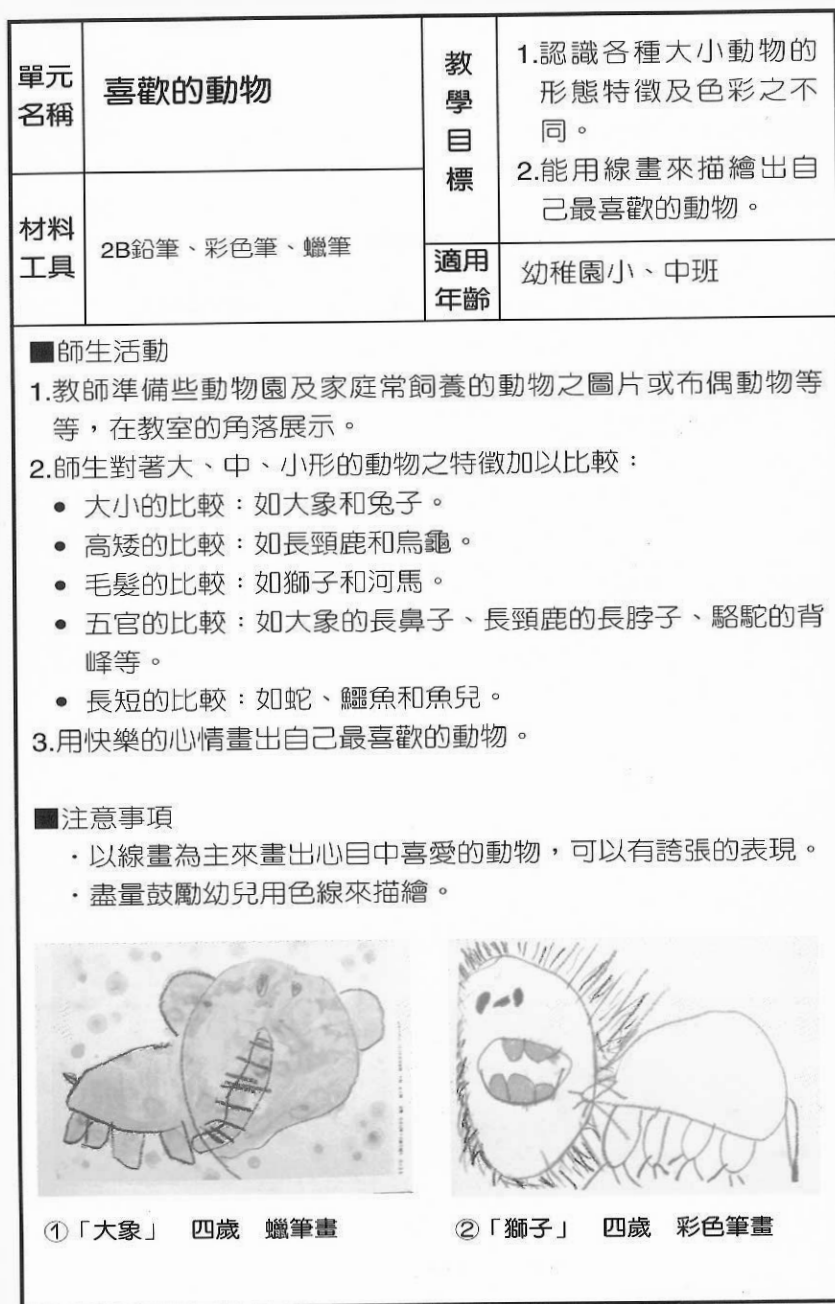 單元
名稱
喜歡的動物
教
學
目
標
1.認識各種大小動物的
形態特徵及色彩之不
同。
2.能用線畫來描繪出自
己最喜歡的動物。
材料
工具
2B鉛筆、彩色筆、蠟筆
適用
年齡
幼稚園小、中班
■師生活動
1.教師準備些動物園及家庭常飼養的動物之圖片或布偶動物等
等，在教室的角落展示。
2.師生對著大、中、小形的動物之特徵加以比較：
• 大小的比較：如大象和兔子。
• 高矮的比較：如長頸鹿和烏龜。
• 毛髮的比較：如獅子和河馬。
• 五官的比較：如大象的長鼻子、長頸鹿的長脖子、駱駝的背
峰等。
• 長短的比較：如蛇、鱷魚和魚兒。
3.用快樂的心情畫出自己最喜歡的動物。
■注意事項
．以線畫為主來畫出心目中喜愛的動物，可以有誇張的表現。
．盡量鼓勵幼兒用色線來描繪。
①「大象」 四歲 蠟筆畫
②「獅子」 四歲 彩色筆畫